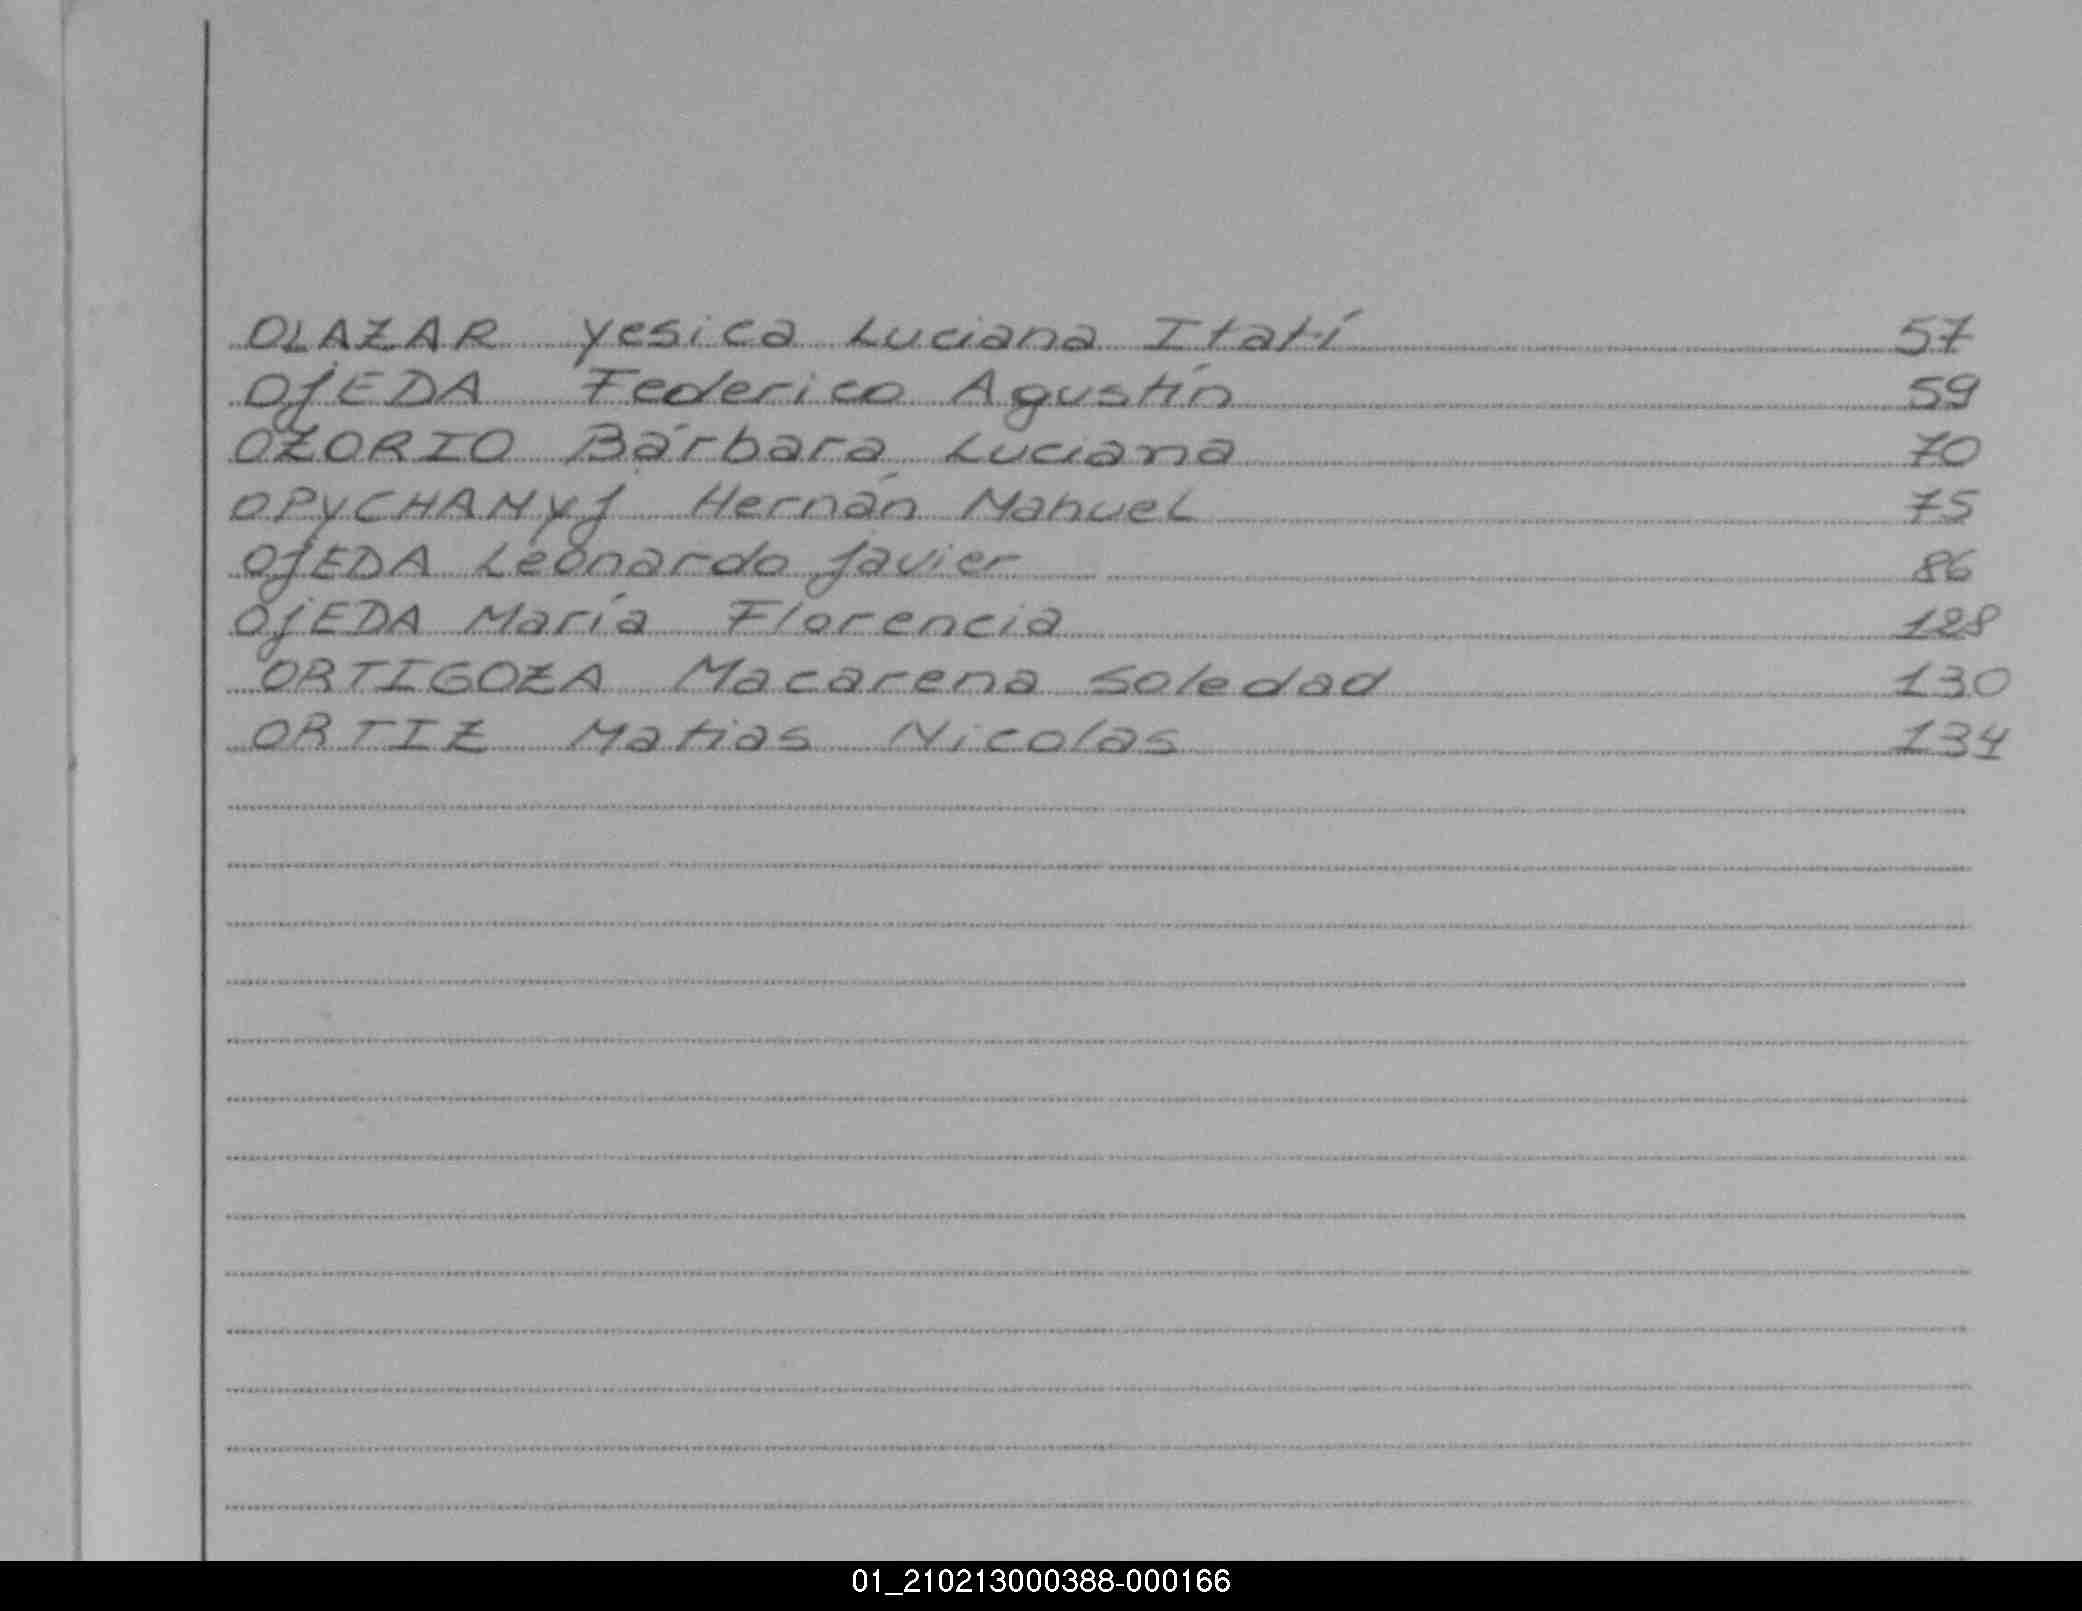 OLAZAR Yesica Luciana Itatí 57
OJEDA Federico Agustín 59
OZORIO Bárbara Luciana 70
OPYCHANYJ Hernán Manuel 75
OJEDA Leonardo Javier 86
OJEDA María Florencia 128
ORTIGOZA Macarena Soledad 130
ORTIZ Matias Nicolas 134
01_210213000388-000166